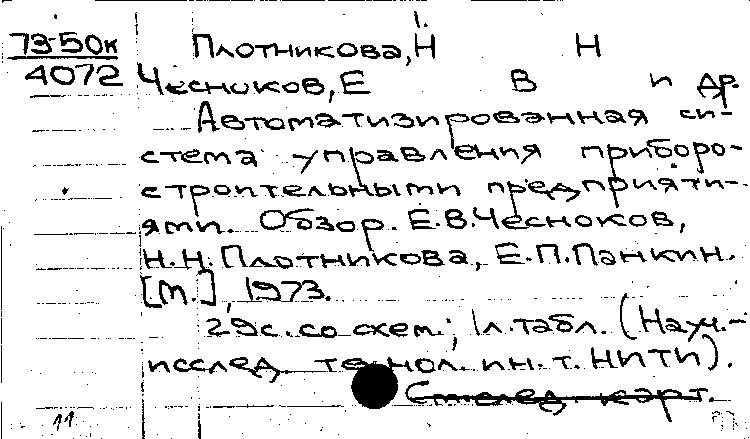 1.
73-50к Плотникова, Н Н
4072 Чесноков, Е В и др.
Автоматизированная си-
стема управления приборо-
строительными предприяти-
ями. Обзор. Е.В.Чесноков,
Н.Н.Плотникова, Е.П.Панкин.
[М.], 1973.
29с. со схем.; 1л.табл. (Науч.-
исслед. технол. ин.т. НИТИ).
См след. карт.
11